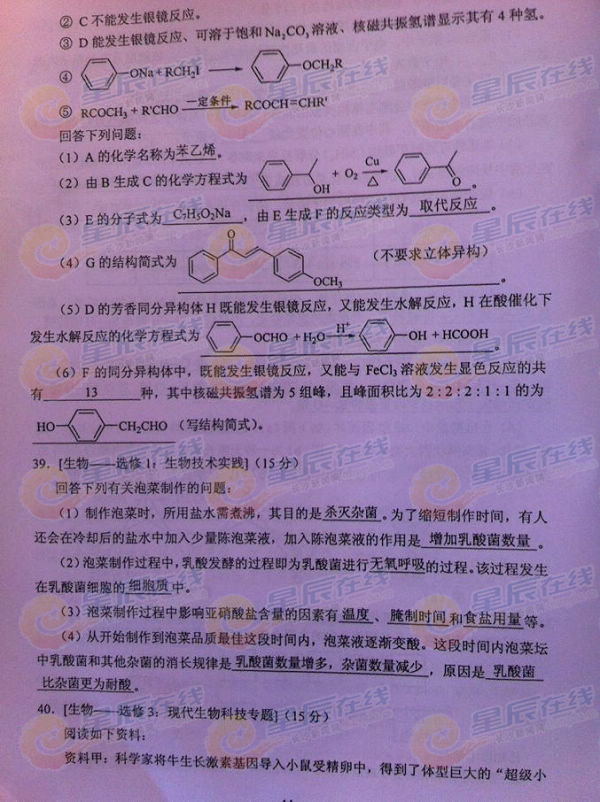 ② C不能发生银镜反应。
③ D能发生银镜反应、可溶于饱和Na₂CO₃溶液、核磁共振氢谱显示其有4种氢。
④ —ONa+RCH₂I → —OCH₂R
⑤ RCOCH₃ + R'CHO 一定条件 → RCOCH=CHR'
回答下列问题:
(1) A的化学名称为苯乙烯。
(2) 由B生成C的化学方程式为 OH + O₂ Cu △ O 。
(3) E的分子式为 C₇H₅O₂Na ,由E生成F的反应类型为 取代反应 。
(4) G的结构简式为 O OCH₃ (不要求立体异构) 。
(5) D的芳香同分异构体H既能发生银镜反应,又能发生水解反应,H在酸催化下
发生水解反应的化学方程式为 —OCHO +H₂O H⁺ → —OH +HCOOH 。
(6) F的同分异构体中,既能发生银镜反应,又能与FeCl₃溶液发生显色反应的共
有 13 种,其中核磁共振氢谱为5组峰,且峰面积比为2:2:2:1:1的为
HO— —CH₂CHO (写结构简式)。
39. [生物——选修1:生物技术实践](15分)
回答下列有关泡菜制作的问题:
(1) 制作泡菜时,所用盐水需煮沸,其目的是杀灭杂菌。为了缩短制作时间,有人
还会在冷却后的盐水中加入少量陈泡菜液,加入陈泡菜液的作用是 增加乳酸菌数量 。
(2) 泡菜制作过程中,乳酸发酵的过程即为乳酸菌进行无氧呼吸的过程。该过程发生
在乳酸菌细胞的 细胞质 中。
(3) 泡菜制作过程中影响亚硝酸盐含量的因素有 温度 、 腌制时间 和食盐用量等。
(4) 从开始制作到泡菜品质最佳这段时间内,泡菜液逐渐变酸。这段时间内泡菜坛
中乳酸菌和其他杂菌的消长规律是 乳酸菌数量增多,杂菌数量减少 ,原因是 乳酸菌
比杂菌更为耐酸 。
40. [生物——选修3:现代生物科技专题](15分)
阅读如下资料:
资料甲:科学家将牛生长激素基因导入小鼠受精卵中,得到了体型巨大的“超级小